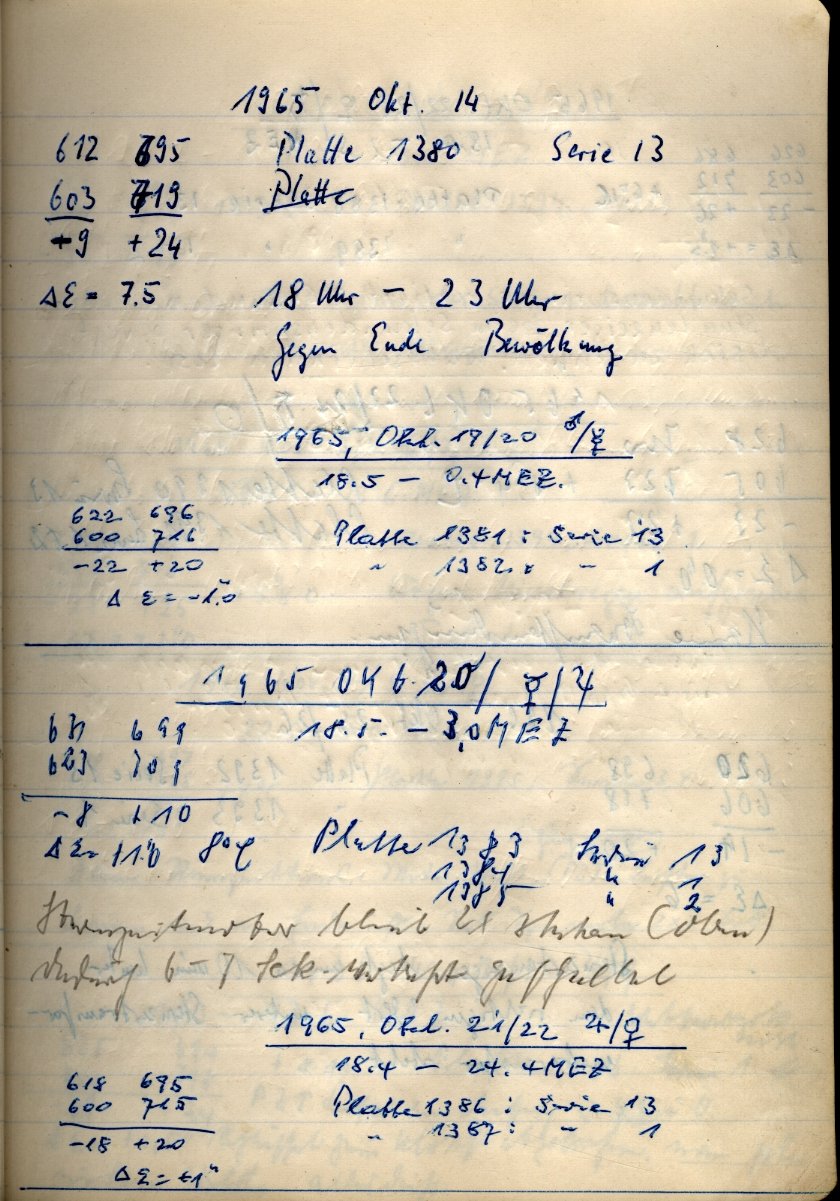 1965 Okt. 14
612 695 Platte 1380 Serie 13
603 719 Platte
+9 +24
Δε = 7.5 18 Uhr – 23 Uhr
Gegen Ende Bewölkung
1965, Okt. 19/20 ♂/☿
18.5 – 0.4 MEZ.
622 696
600 716 Platte 1381 : Serie 13
-22 +20 " 1382 : " 1
Δ ε = -1."0
1965 Okt. 20/ ☿/♃
631 699 18.5 – 3,0 MEZ
623 709
-8 +10
Δε = +1."0 8°C Platte 1383 Serie 13
1384 " 1
1385 " 2
blieb 2x stehen (oben)
6–7 Sek.
1965, Okt. 21/22 ♃/♀
18.4 – 24.4 MEZ
618 695
600 715 Platte 1386 : Serie 13
-18 +20 " 1387 : " 1
Δε = +1"